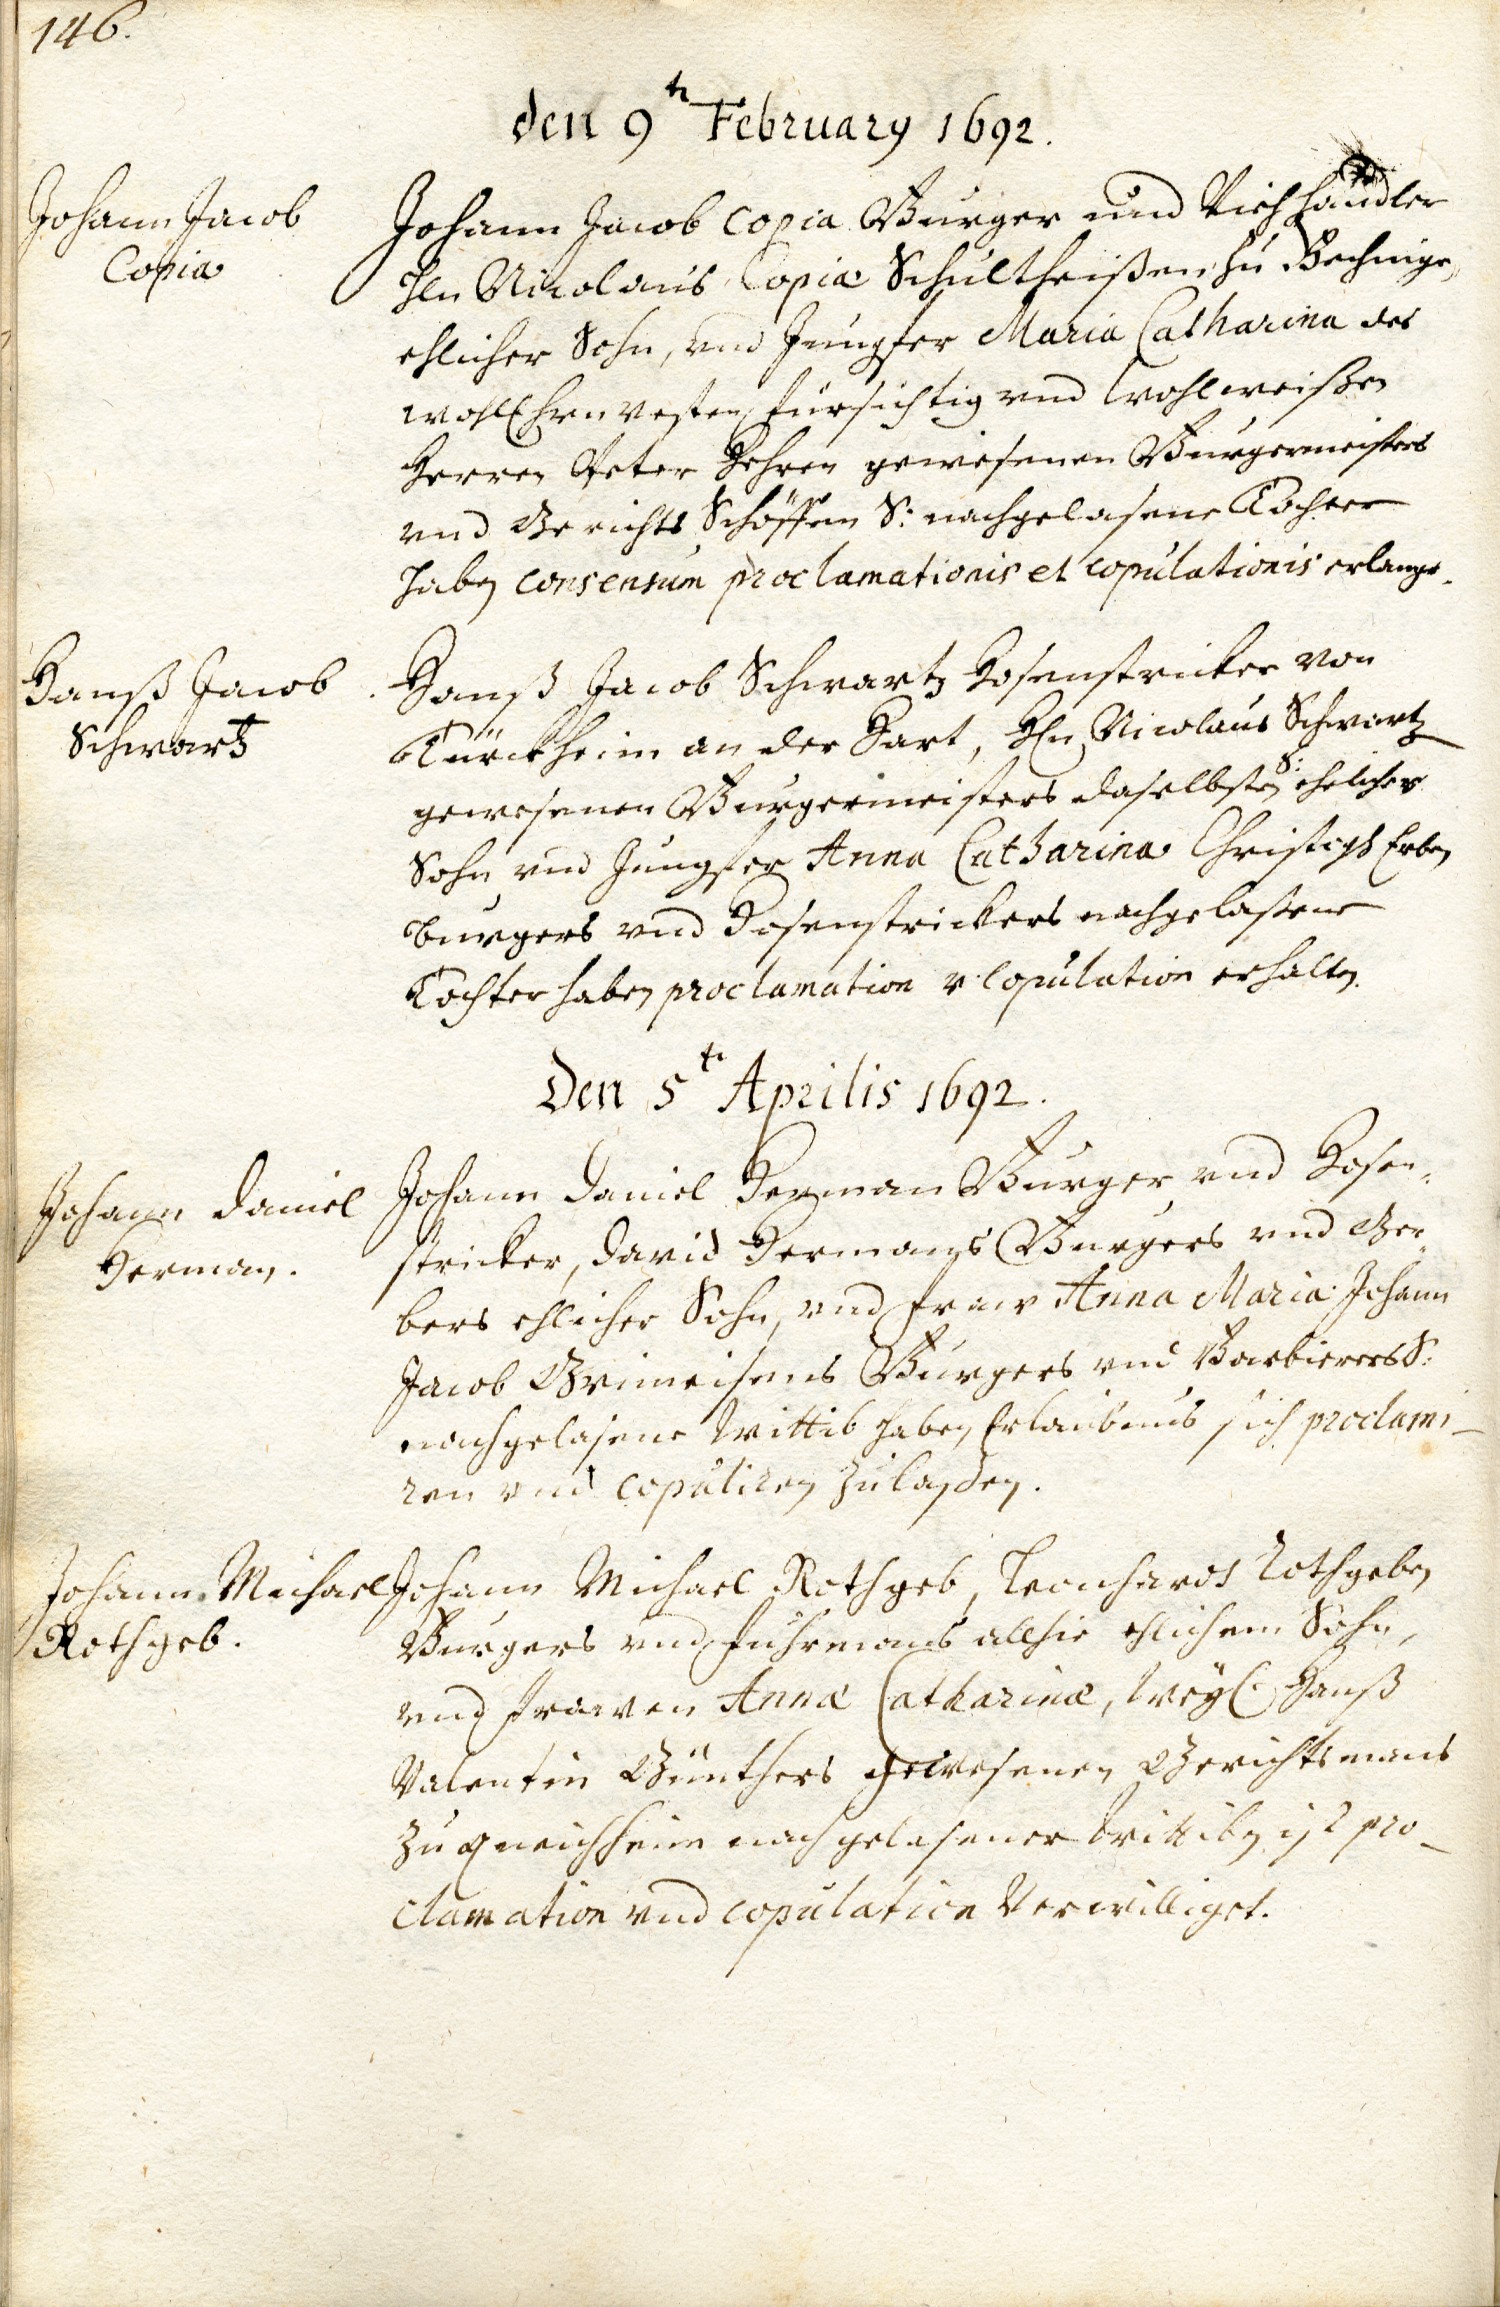 146.
den 9tn February 1692.
Johann Jacob
Copia
Johann Jacob Copia Burger und Viehhändler
Hln Nicolaus Copia Schultheißen zu Bechingen,
ehlicher Sohn, vnd Jungfer Maria Catharina des
wohlEhrnvesten fürsichtig vnd Wohlweißen
Herren Peter gewesenen Burgermeisters
vnd Gerichts Schöffen S: nachgelasene Tochter
haben consensum proclamationis et copulationis erlangt.
Hanß Jacob
Schwartz
Hanß Jacob Schwartz Hosenstricker von
Türckheim an der Hart, Hln Nicolaus Schwartz
gewesenen Burgermeisters daselbsten S: ehelicher
Sohn vnd Jungfer Anna Catharina Christoph Erben
burgers vnd Hosenstrickers nachgelaßene
Tochter haben proclamation v. Copulation erhalten.
Den 5tn Aprilis 1692.
Johann Daniel
Herman.
Johann Daniel Herman Burger vnd Hosen-
stricker, David Hermans Burgers vnd Ger-
bers ehlicher Sohn, vnd fraw Anna Maria Johann
Jacob Grimeisens Burgers vnd Barbierers S:
nachgelasene Wittib haben Erlaubnus sich proclami-
ren vnd copuliren zulassen.
Johann Michael
Rothgeb.
Johann Michael Rothgeb, Leonhards Rothgeben
Burgers vnd fuhrmans allhie ehlichem Sohn,
vnd frawen Annæ Catharinæ, Weyl: Hanß
Valentin Günthers gewesenen Gerichtsmans
zu Queichheim nachgelasener Wittiben ist pro-
clamation vnd copulation Verwilliget.